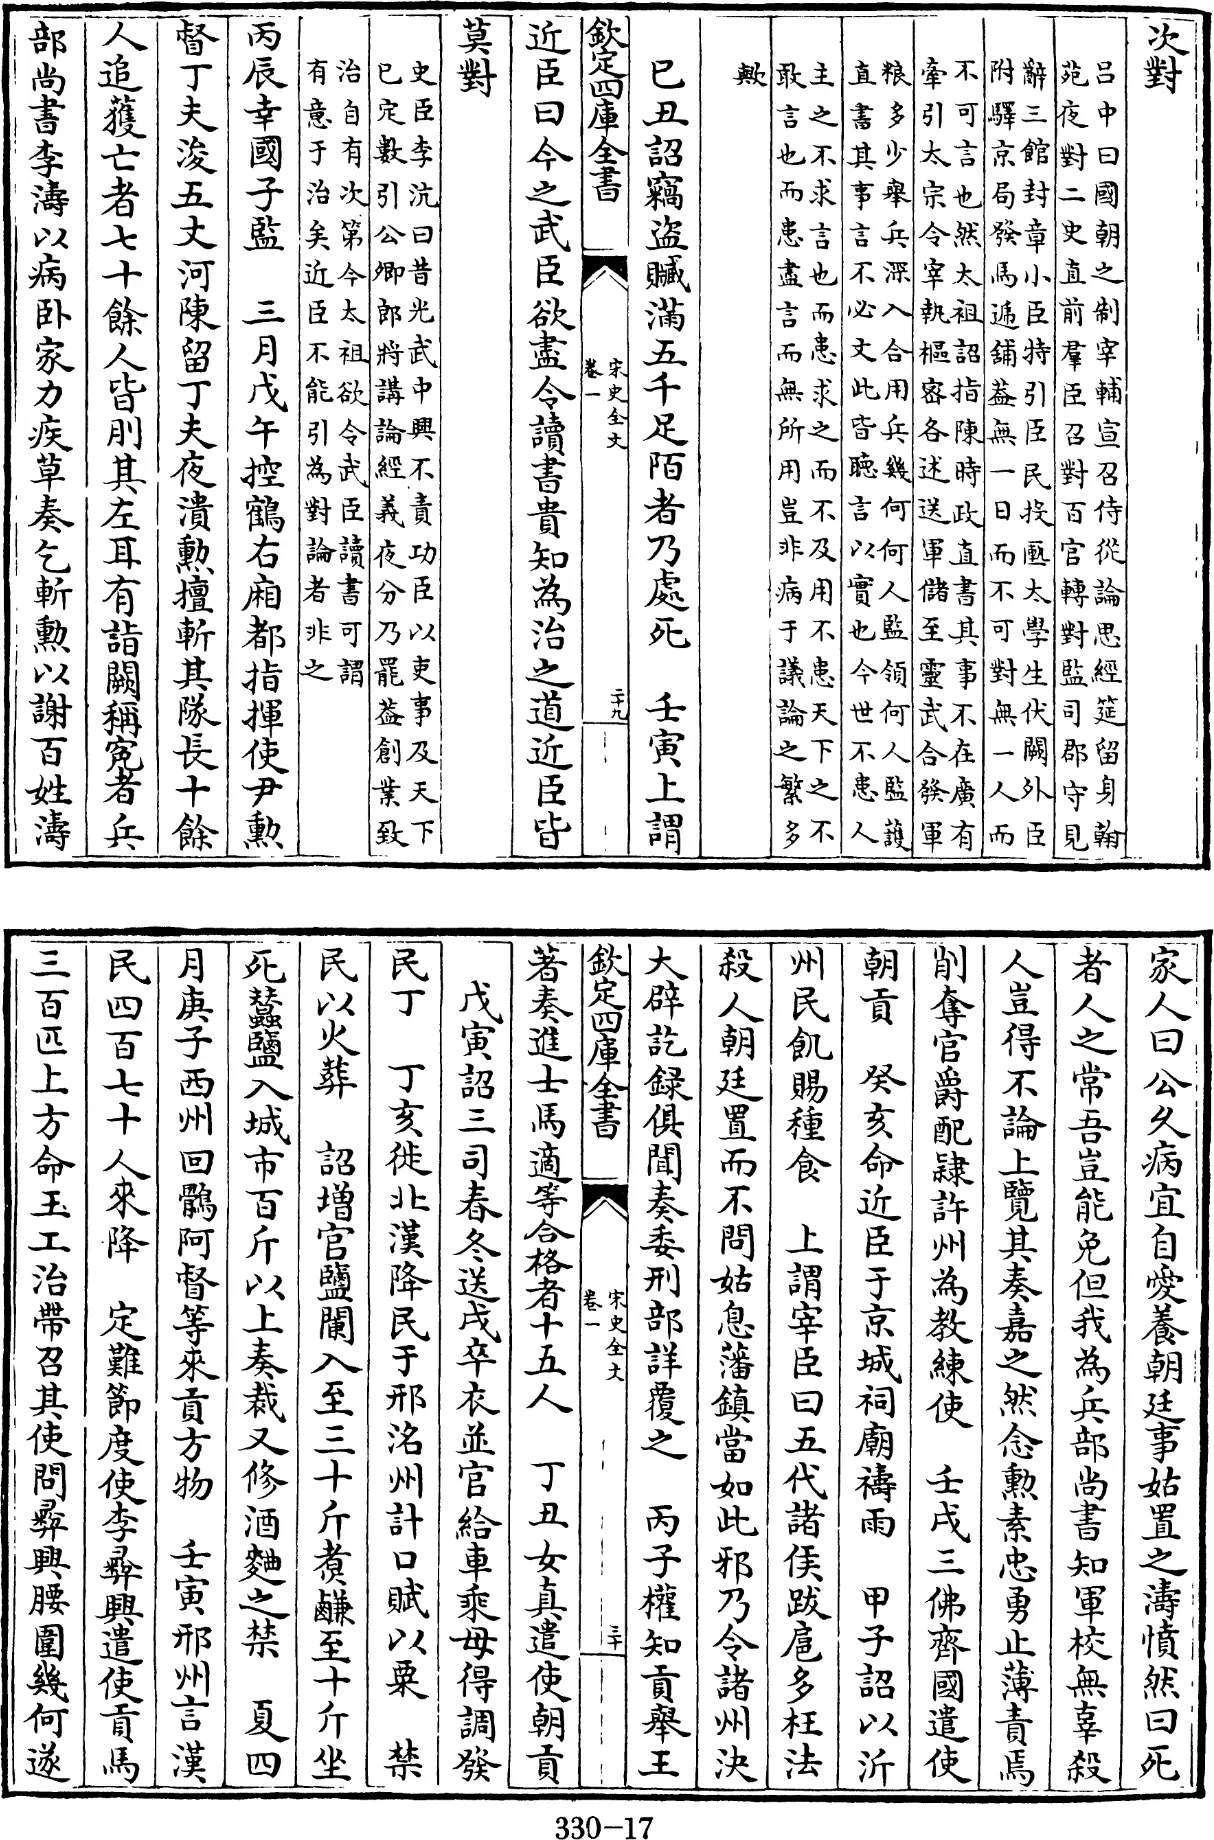 次對
呂中曰國朝之制宰輔宣召侍從論思經筵留身翰
苑夜對二史直前羣臣召對百官轉對監司郡守見
辭三館封章小臣特引臣民投匭太學生伏闕外臣
附驛京局發馬遞鋪葢無一日而不可對無一人而
不可言也然太祖詔指陳時政直書其事不在廣有
牽引太宗令宰執樞密各述送軍儲至靈武合發軍
粮多少舉兵深入合用兵幾何何人監領何人監護
直書其事言不必文此皆聽言以實也今世不患人
主之不求言也而患求之而不及用不患天下之不
敢言也而患盡言而無所用豈非病于議論之繁多
歟
己丑詔竊盜贓滿五千足陌者乃處死 壬寅上謂
欽定四庫全書 宋史全文 卷一 二十九
近臣曰今之武臣欲盡令讀書貴知為治之道近臣皆
莫對
史臣李沆曰昔光武中興不責功臣以吏事及天下
已定數引公卿郎將講論經義夜分乃罷葢創業致
治自有次第今太祖欲令武臣讀書可謂
有意于治矣近臣不能引為對論者非之
丙辰幸國子監 三月戊午控鶴右廂都指揮使尹勲
督丁夫浚五丈河陳留丁夫夜潰勲擅斬其隊長十餘
人追獲亡者七十餘人皆刖其左耳有詣闕稱寃者兵
部尚書李濤以病卧家力疾草奏乞斬勲以謝百姓濤
家人曰公久病宜自愛養朝廷事姑置之濤憤然曰死
者人之常吾豈能免但我為兵部尚書知軍校無辜殺
人豈得不論上覽其奏嘉之然念勲素忠勇止薄責焉
削奪官爵配隷許州為教練使 壬戌三佛齊國遣使
朝貢 癸亥命近臣于京城祠廟禱雨 甲子詔以沂
州民飢賜種食 上謂宰臣曰五代諸侯跋扈多枉法
殺人朝廷置而不問姑息藩鎮當如此邪乃令諸州決
大辟訖録俱聞奏委刑部詳覆之 丙子權知貢舉王
欽定四庫全書 宋史全文 卷一 三十
著奏進士馬適等合格者十五人 丁丑女真遣使朝貢
戊寅詔三司春冬送戍卒衣並官給車乘毋得調發
民丁 丁亥徙北漢降民于邢洺州計口賦以粟 禁
民以火葬 詔增官鹽闌入至三十斤煑鹻至十斤坐
死蠶鹽入城市百斤以上奏裁又修酒麴之禁 夏四
月庚子西州回鶻阿督等來貢方物 壬寅邢州言漢
民四百七十人來降 定難節度使李彞興遣使貢馬
三百匹上方命玉工治帶召其使問彞興腰圍幾何遂
330-17